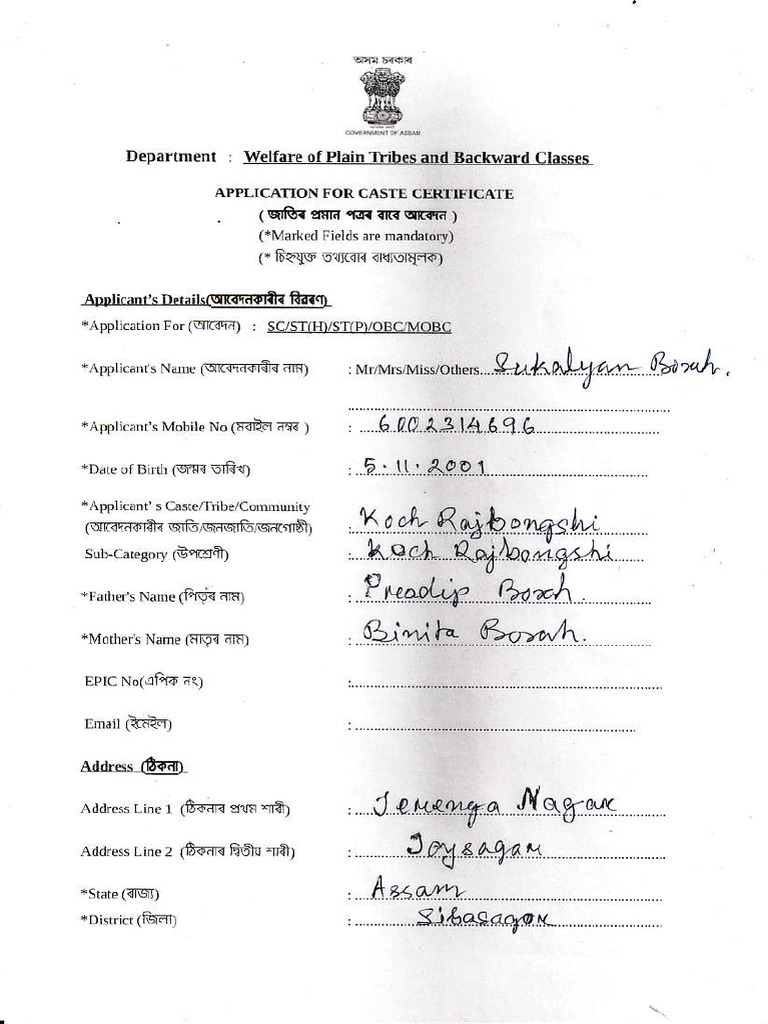 অসম চৰকাৰ
GOVERNMENT OF ASSAM
Department : Welfare of Plain Tribes and Backward Classes
APPLICATION FOR CASTE CERTIFICATE
( জাতিৰ প্ৰমান পত্ৰৰ বাবে আবেদন )
(*Marked Fields are mandatory)
(* চিহ্নযুক্ত তথ্যবোৰ বাধ্যতামূলক)
Applicant's Details(আবেদনকাৰীৰ বিৱৰণ)
*Application For (আবেদন) : SC/ST(H)/ST(P)/OBC/MOBC
*Applicant's Name (আবেদনকাৰীৰ নাম) : Mr/Mrs/Miss/Others Sukalyan Borah.
*Applicant's Mobile No (মবাইল নম্বৰ ) : 6002314696
*Date of Birth (জন্মৰ তাৰিখ) : 5.11.2001
*Applicant' s Caste/Tribe/Community
(আবেদনকাৰীৰ জাতি/জনজাতি/জনগোষ্ঠী) : Koch Rajbongshi
Sub-Category (উপশ্ৰেণী) : Koch Rajbongshi
*Father's Name (পিতৃৰ নাম) : Preadip Borah.
*Mother's Name (মাতৃৰ নাম) : Binita Borah.
EPIC No(এপিক নং) :
Email (ইমেইল) :
Address (ঠিকনা)
Address Line 1 (ঠিকনাৰ প্ৰথম শাৰী) : Jerenga Nagar
Address Line 2 (ঠিকনাৰ দ্বিতীয় শাৰী) : Joysagar
*State (ৰাজ্য) : Assam
*District (জিলা) : Sibasagar